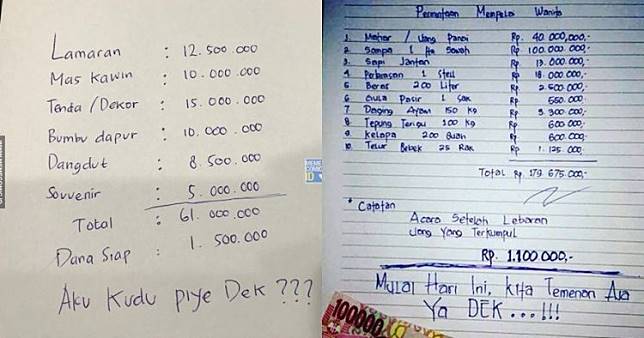 Lamaran : 12.500.000
Mas kawin : 10.000.000
Tenda / Dekor : 15.000.000
Bumbu dapur : 10.000.000
Dangdut : 8.500.000
Souvenir : 5.000.000
Total : 61.000.000
Dana Siap : 1.500.000
Aku Kudu piye Dek ???
Permintaan Mempelai Wanita
1. Mahar / Uang Panai Rp. 40.000.000,-
2. Sompa 1 Ha Sawah Rp 100.000.000,-
3. Sapi Jantan Rp 13.000.000,-
4. Perhiasan 1 Stell Rp 18.000.000,-
5. Beras 200 Liter Rp 2.500.000,-
6. Gula Pasir 1 Sak Rp 550.000,-
7. Daging Ayam 150 Kg Rp 3.300.000,-
8. Tepung Terigu 100 Kg Rp 600.000,-
9. Kelapa 200 Buah Rp 600.000,-
10. Telur Bebek 25 Rak Rp 1.125.000,-
Total Rp 179.675.000,-
* Catatan
Acara Setelah Lebaran
Uang Yang Terkumpul
Rp. 1.100.000,-
Mulai Hari Ini, kita Temenan Aja
Ya DEK...!!!
100000